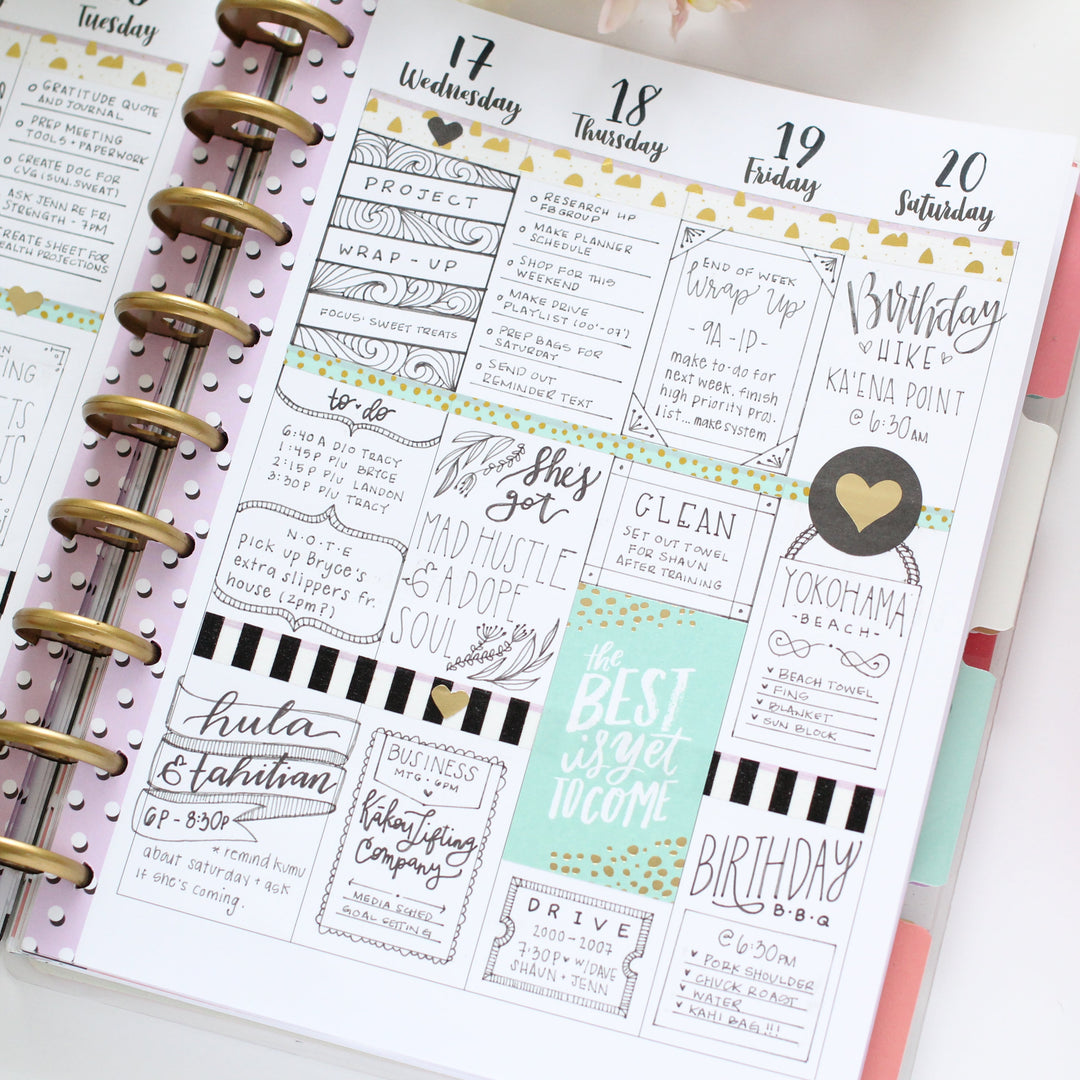 Tuesday
GRATITUDE QUOTE
AND JOURNAL
PREP MEETING
TOOLS + PAPERWORK
CREATE DOC FOR
CVG (SUN. SWEAT)
ASK JENN RE FRI
STRENGTH - 7PM
CREATE SHEET FOR
HEALTH PROJECTIONS
17
Wednesday
PROJECT
WRAP-UP
FOCUS: SWEET TREATS
to do
6:40A D/O TRACY
1:45P P/U BRYCE
2:15P P/U LANDON
3:30P P/U TRACY
N.O.T.E
pick up Bryce's
extra slippers fr.
house (2pm?)
hula
& tahitian
6P - 8:30P
* remind kumu
about saturday + ask
if she's coming.
18
Thursday
RESEARCH LIP
FB GROUP
MAKE PLANNER
SCHEDULE
SHOP FOR THIS
WEEKEND
MAKE DRIVE
PLAYLIST (00'-07')
PREP BAGS FOR
SATURDAY
SEND OUT
REMINDER TEXT
She's
got
MAD HUSTLE
& A DOPE
SOUL
BUSINESS
MTG • 6PM
Kākou Lifting
Company
MEDIA SCHED
GOAL SETTING
19
Friday
END OF WEEK
Wrap Up
- 9A - 1P -
make to-do for
next week, finish
high priority proj.
list... make system
CLEAN
SET OUT TOWEL
FOR SHAUN
AFTER TRAINING
the
BEST
is yet
TO COME
DRIVE
2000-2007
7:30P ♥ W/DAVE
SHAUN + JENN
20
Saturday
Birthday
HIKE
KA'ENA POINT
@ 6:30AM
YOKOHAMA
- BEACH -
BEACH TOWEL
FINS
BLANKET
SUN BLOCK
BIRTHDAY
B•B•Q
@ 6:30PM
PORK SHOULDER
CHUCK ROAST
WATER
KAHI BAG!!!